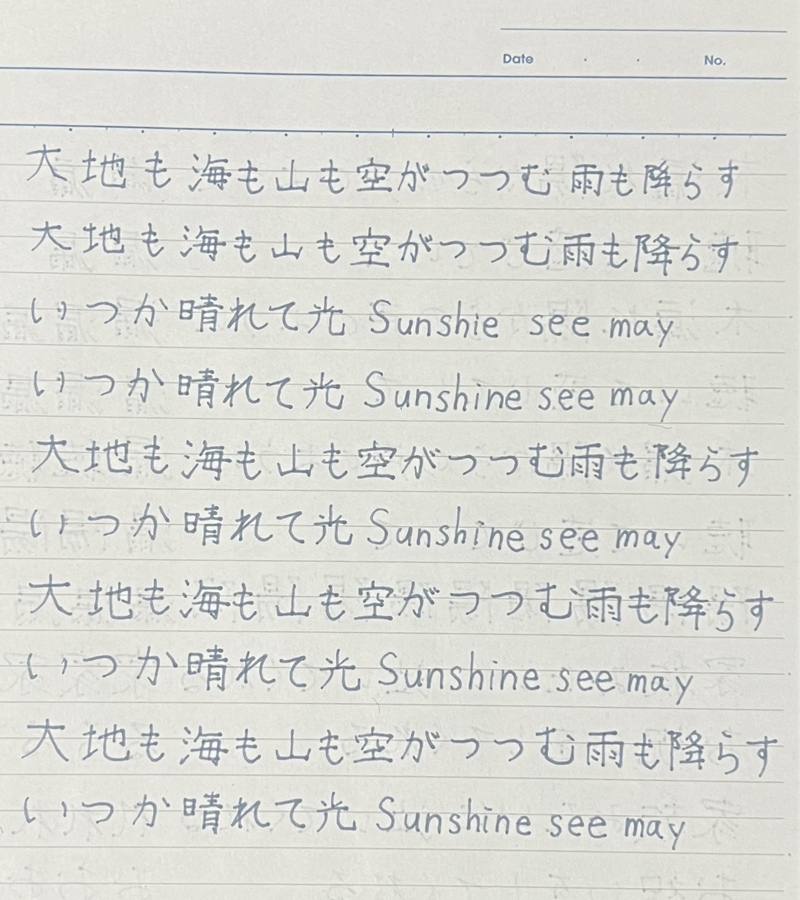 Date . . No.
大地も海も山も空がつつむ雨も降らす
大地も海も山も空がつつむ雨も降らす
いつか晴れて光 Sunshie see may
いつか晴れて光 Sunshine see may
大地も海も山も空がつつむ雨も降らす
いつか晴れて光 Sunshine see may
大地も海も山も空がつつむ雨も降らす
いつか晴れて光 Sunshine see may
大地も海も山も空がつつむ雨も降らす
いつか晴れて光 Sunshine see may